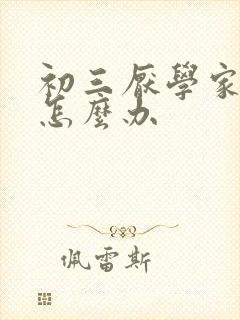 初三厭學家
怎麼办
佩雷斯